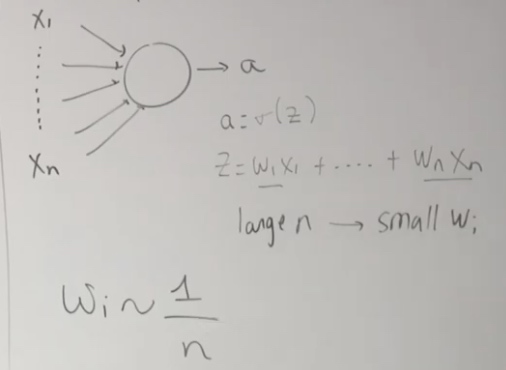 x₁
→ a
a = σ(z)
Xn
z = w₁x₁ + .... + wnxn
large n → small wi
wi ~ 1/n